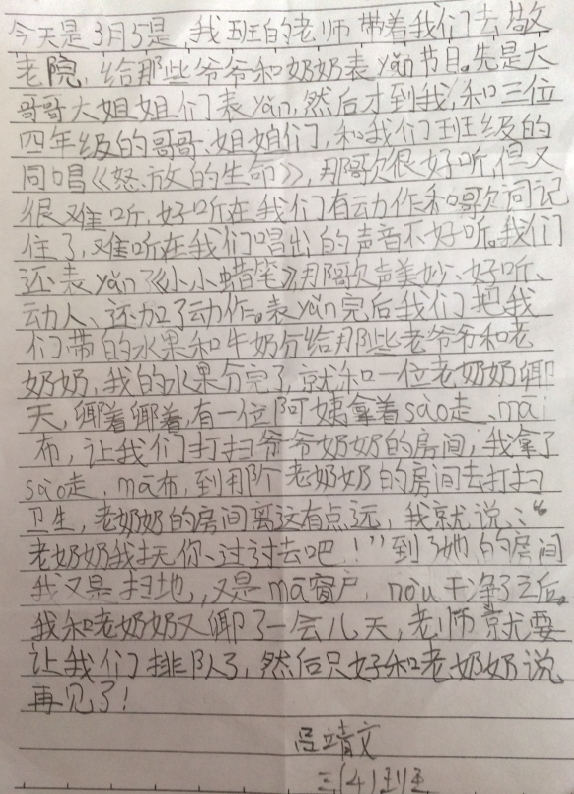 今天是3月5是,我班的老师带着我们去敬
老院,给那些爷爷和奶奶表yǎn节目。先是大
哥哥大姐姐们表yǎn,然后才到我,和三位
四年级的哥哥、姐姐们,和我们班级的
同唱《怒放的生命》,那歌很好听,但又
很难听,好听在我们有动作和歌词记
住了,难听在我们唱出的声音不好听。我们
还表yǎn了《小小蜡笔》,那歌声美妙、好听、
动人、还加了动作。表yǎn完后我们把我
们带的水果和牛奶分给那些老爷爷和老
奶奶,我的水果分完了,就和一位老奶奶聊
天,聊着聊着,有一位阿姨拿着sào走、mā
布,让我们打扫爷爷奶奶的房间,我拿了
sào走、mā布,到那个老奶奶的房间去打扫
卫生,老奶奶的房间离这有点远,我就说:“
老奶奶我扶你过过去吧!”到了她的房间
我又是扫地,又是mā窗户,nòu干净了之后。
我和老奶奶又聊了一会儿天,老师就要
让我们排队了,然后只好和老奶奶说
再见了!
吕靖文
三(4)班